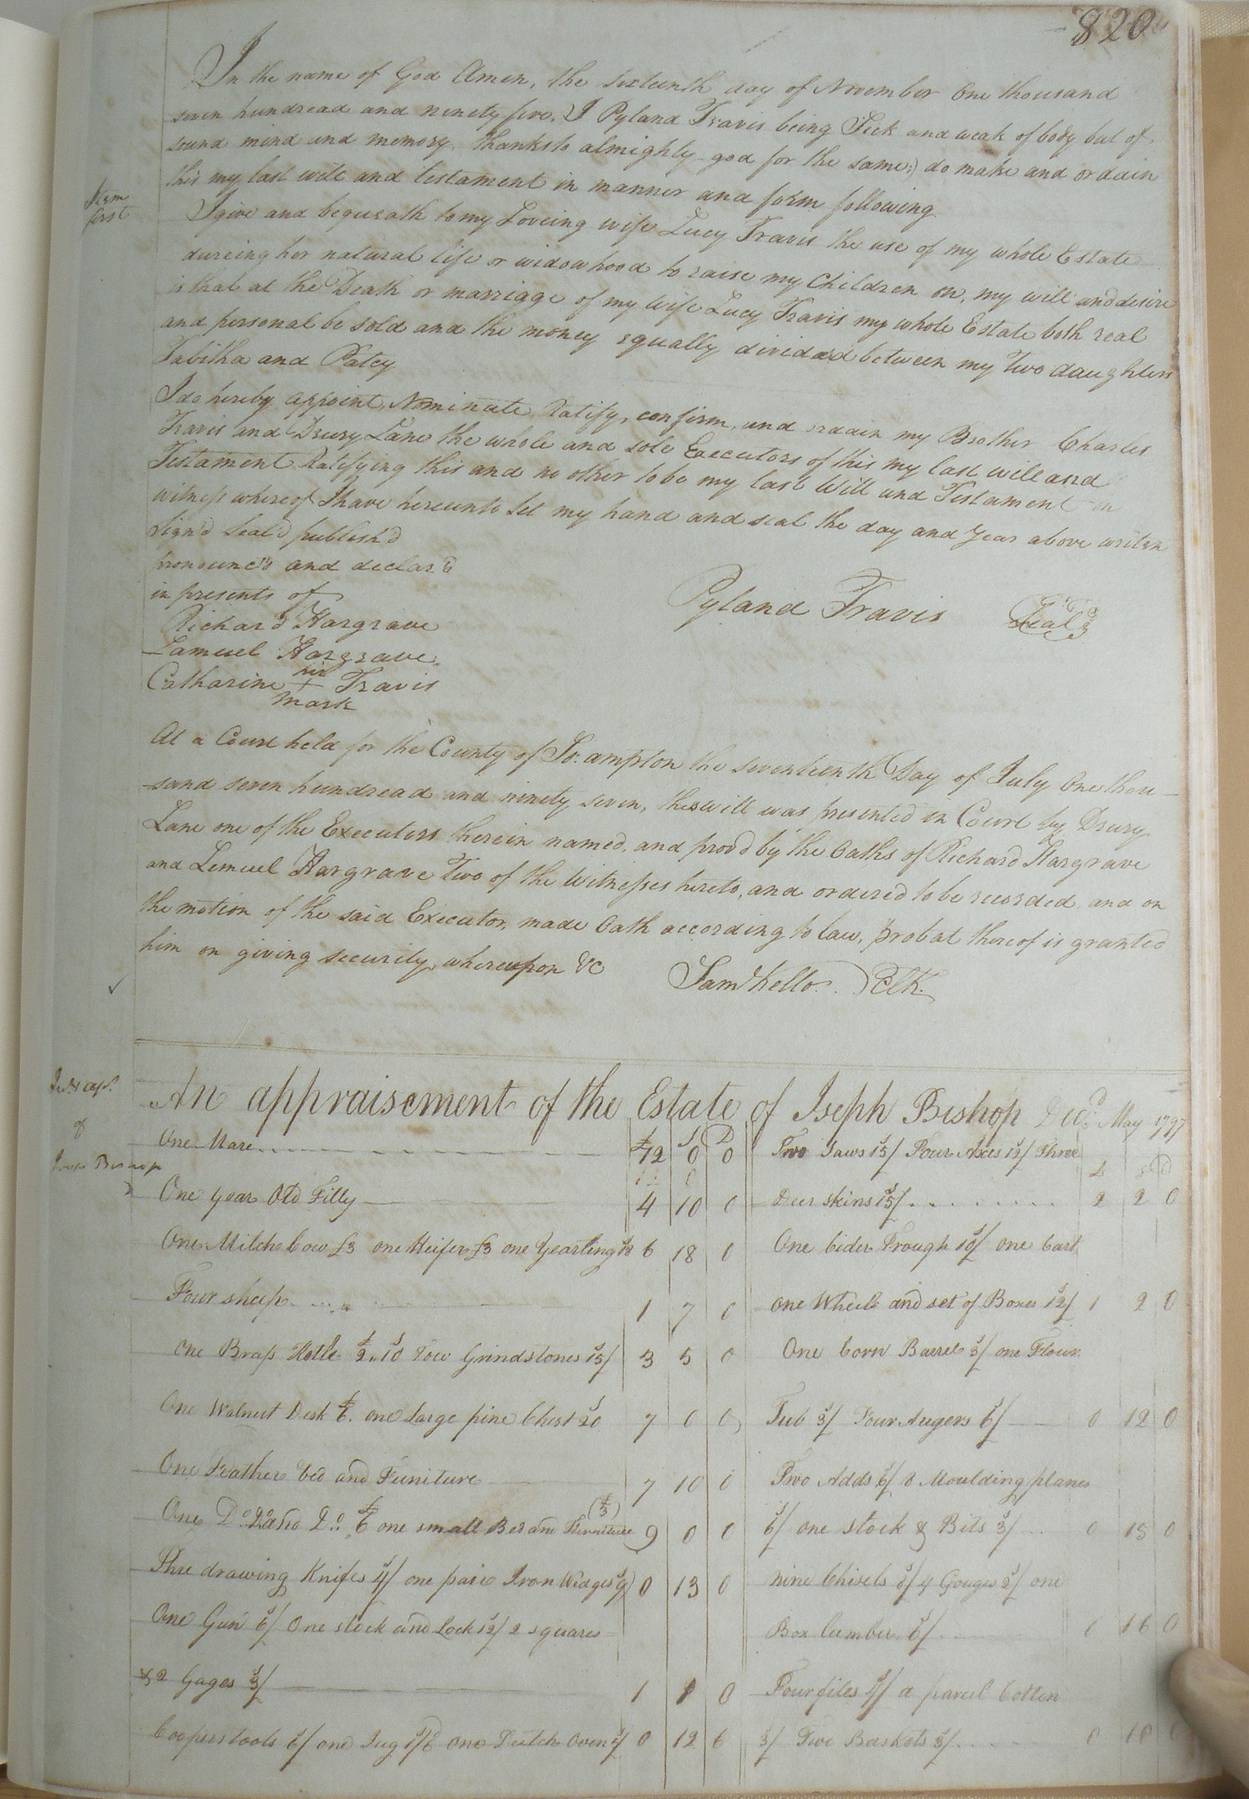 820
In the name of God Amen, the sixteenth day of November One thousand
seven hundread and ninety five. I Pyland Travis being Sick and weak of body but of
sound mind and memory. thanks to almighty god for the same;) do make and ordain
this my last will and testament in manner and form following
Item first
I give and bequeath to my Loveing wife Lucy Travis the use of my whole Estate
dureing her natural life or widowhood to raise my Children on, my will and desire
is that at the Death or marriage of my wife Lucy Travis my whole Estate both real
and personal be sold and the money equally divided between my Two daughters
Tabitha and Patcy
I do hereby appoint, Nominate Ratify, confirm, and ordain my Brother Charles
Travis and Drury Lane the whole and sole Executors of this my last will and
Testament Ratifying this and no other to be my last Will and Testament in
witness whereof I have hereunto Set my hand and seal the day and year above writen
Sign'd Seal'd publish'd
pronounc'd and declar'd
in presents of
Pyland Travis Seal
Richard Hargrave
Lemuel Hargrave
Catharine her + mark Travis
At a Court held for the County of So:ampton the seventeenth Day of July One thou
sand seven hundread and ninety seven, this will was presented in Court by Drury
Lane one of the Executors therein named, and prov'd by the Oaths of Richard Hargrave
and Lemuel Hargrave Two of the Witnesses hereto, and ordered to be recorded, and on
the motion of the said Executor, made Oath according to law, probat thereof is granted
him on giving security, whereupon &c Saml Kello. DClk.
of
An appraisement of the Estate of Joseph Bishop Decd. May 1797
One Mare 12 0 0
One year Old Filly 4 10 0
One Milch Cow £3 one Heifer £3 one Yearling 18 6 18 0
Four sheep 1 7 0
One Brass Kettle £2..10 Two Grindstones 15/ 3 5 0
One Walnut Desk £6. one Large pine Chest 20 7 0 0
One Feather bed and Furniture 7 10 0
One Do. and Do. £6 one small Bed and Furniture (£3) 9 0 0
Thre drawing Knifes 4/ one pair Iron Wedges 9/ 0 13 0
One Gun 6/ One stock and Lock 12/ 2 squares
& 2 Gages 3/ 1 1 0
Coopers tools 6/ one Jug 1/6 one Dutch Oven 5/ 0 12 6
Two Saws 15/ Four Axes 12/ Three
Deer skins 15/ 2 2 0
One Cider Trough 10/ one Cart
one Wheel and set of Boxes 12/ 1 2 0
One Corn Barrel 3/ one Flour
Tub 3/ Four Augers 6/ 0 12 0
Two Adds 6/ 8 Moulding planes
6/ one stock & Bits 3/ 0 15 0
nine Chisels 8/ 4 Gouges 2/ one
Box Lumber 6/ 0 16 0
Four files 4/ a parcel Cotten
3/ Two Baskets 3/ 0 10